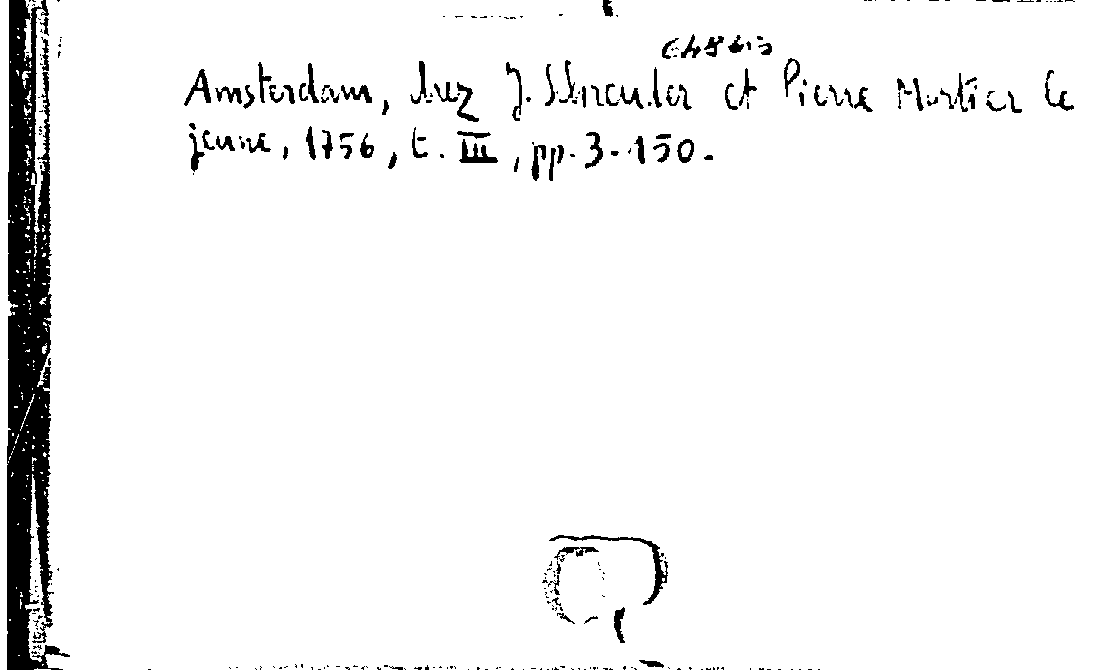 Amsterdam, chez J. Schreuder et Pierre Mortier le
jeune, 1756, t. III, pp. 3-150.